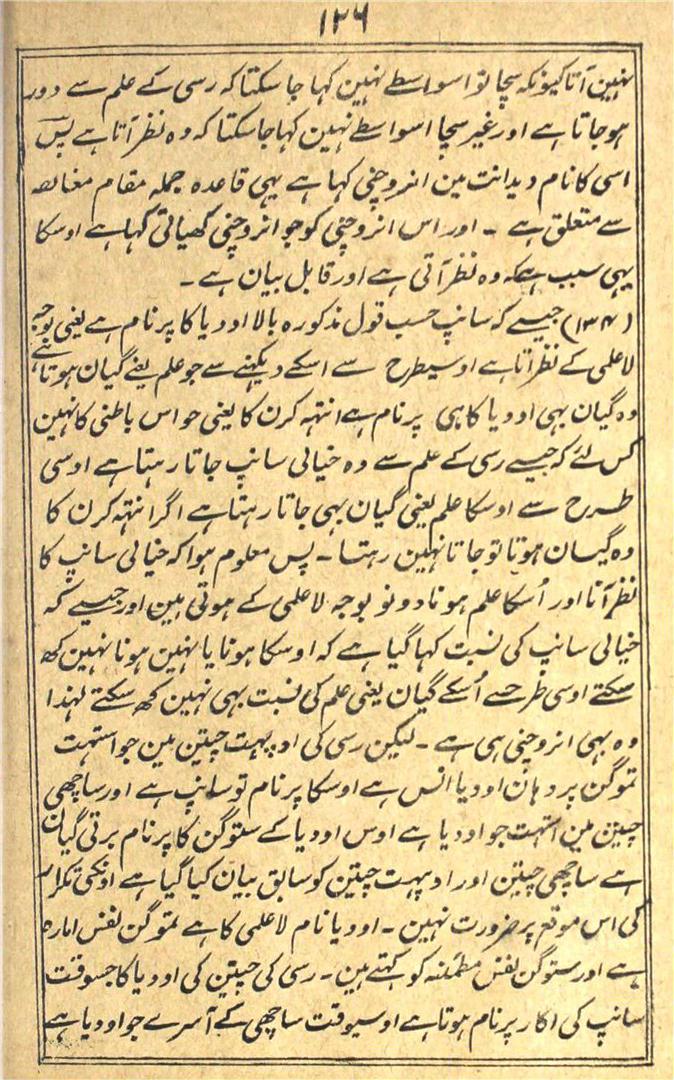 ۱۲۶
نہین آتا کیونکہ سچا تو اسواسطے نہین کہا جا سکتا کہ رسی کے علم سے دور
ہوجاتا ہے اور غیر سچا اسواسطے نہین کہا جاسکتا کہ وہ نظر آتا ہے پس
اسی کا نام ویدانت مین انروچنی کہا ہے یہی قاعدہ جملہ مقام مغالطہ
سے متعلق ہے ۔ اور اس انروچنی کو جو انروچنی کھیاتی کہا ہے اوسکا
یہی سبب ہے کہ وہ نظر آتی ہے اور قابل بیان ہے ۔
(۱۳۴) جیسے کہ سانپ حسب قول مذکورہ بالا اوودیا کا پرنام ہے یعنی بوجہ
لاعلمی کے نظر آتا ہے اوسیطرح سے اسکے دیکہنے سے جو علم یعنے گیان ہوتا ہے
وہ گیان بہی اوودیا کا ہی پرنام ہے انتہہ کرن کا یعنی حواس باطنی کا نہین
کس لئے کہ جیسے رسی کے علم سے وہ خیالی سانپ جاتا رہتا ہے اوسی
طرح سے اوسکا علم یعنی گیان بہی جاتا رہتا ہے اگر انتہہ کرن کا
وہ گیان ہوتا تو جاتا نہین رہتا ۔ پس معلوم ہوا کہ خیالی سانپ کا
نظر آنا اور اُسکا علم ہونا دونو بوجہ لاعلمی کے ہوتی ہین اور جیسے کہ
خیالی سانپ کی نسبت کہا گیا ہے کہ اوسکا ہونا یا نہین ہونا نہین کہہ
سکتے اوسی طرحسے اُسکے گیان یعنی علم کی نسبت بہی نہین کہہ سکتے لہذا
وہ بہی انروچنی ہی ہے ۔ لیکن رسی کی اوپہت چیتن مین جو استہت
تموگن پردہان اوودیا انس ہے اوسکا پرنام تو سانپ ہے اور ساچھی
چیتن مین استہت جو اوودیا ہے اوس اوودیا کے ستوگن کا پرنام برتی گیان
ہے ساچھی چیتن اور اوپہت چیتن کو سابق بیان کیا گیا ہے اونکی تکرار
کی اس موقع پر ضرورت نہین ۔ اوودیا نام لاعلمی کا ہے تموگن نفس امارہ
ہے اور ستوگن نفس مطمئنہ کو کہتے ہین ۔ رسی کی چیتن کی اوودیا کا جسوقت
سانپ کی اکار پرنام ہوتا ہے اوسیوقت ساچھی کے آسرے جو اوودیا ہے